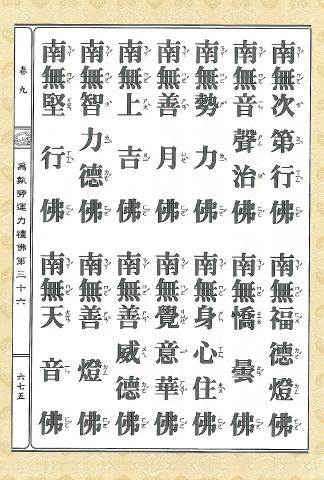 南無次第行佛 南無福德燈佛
南無音聲治佛 南無憍曇佛
南無勢力佛 南無身心住佛
南無善月佛 南無覺意華佛
南無上吉佛 南無善威德佛
南無智力德佛 南無善燈佛
南無堅行佛 南無天音佛
卷九
為執勞運力禮佛第三十六
六七五